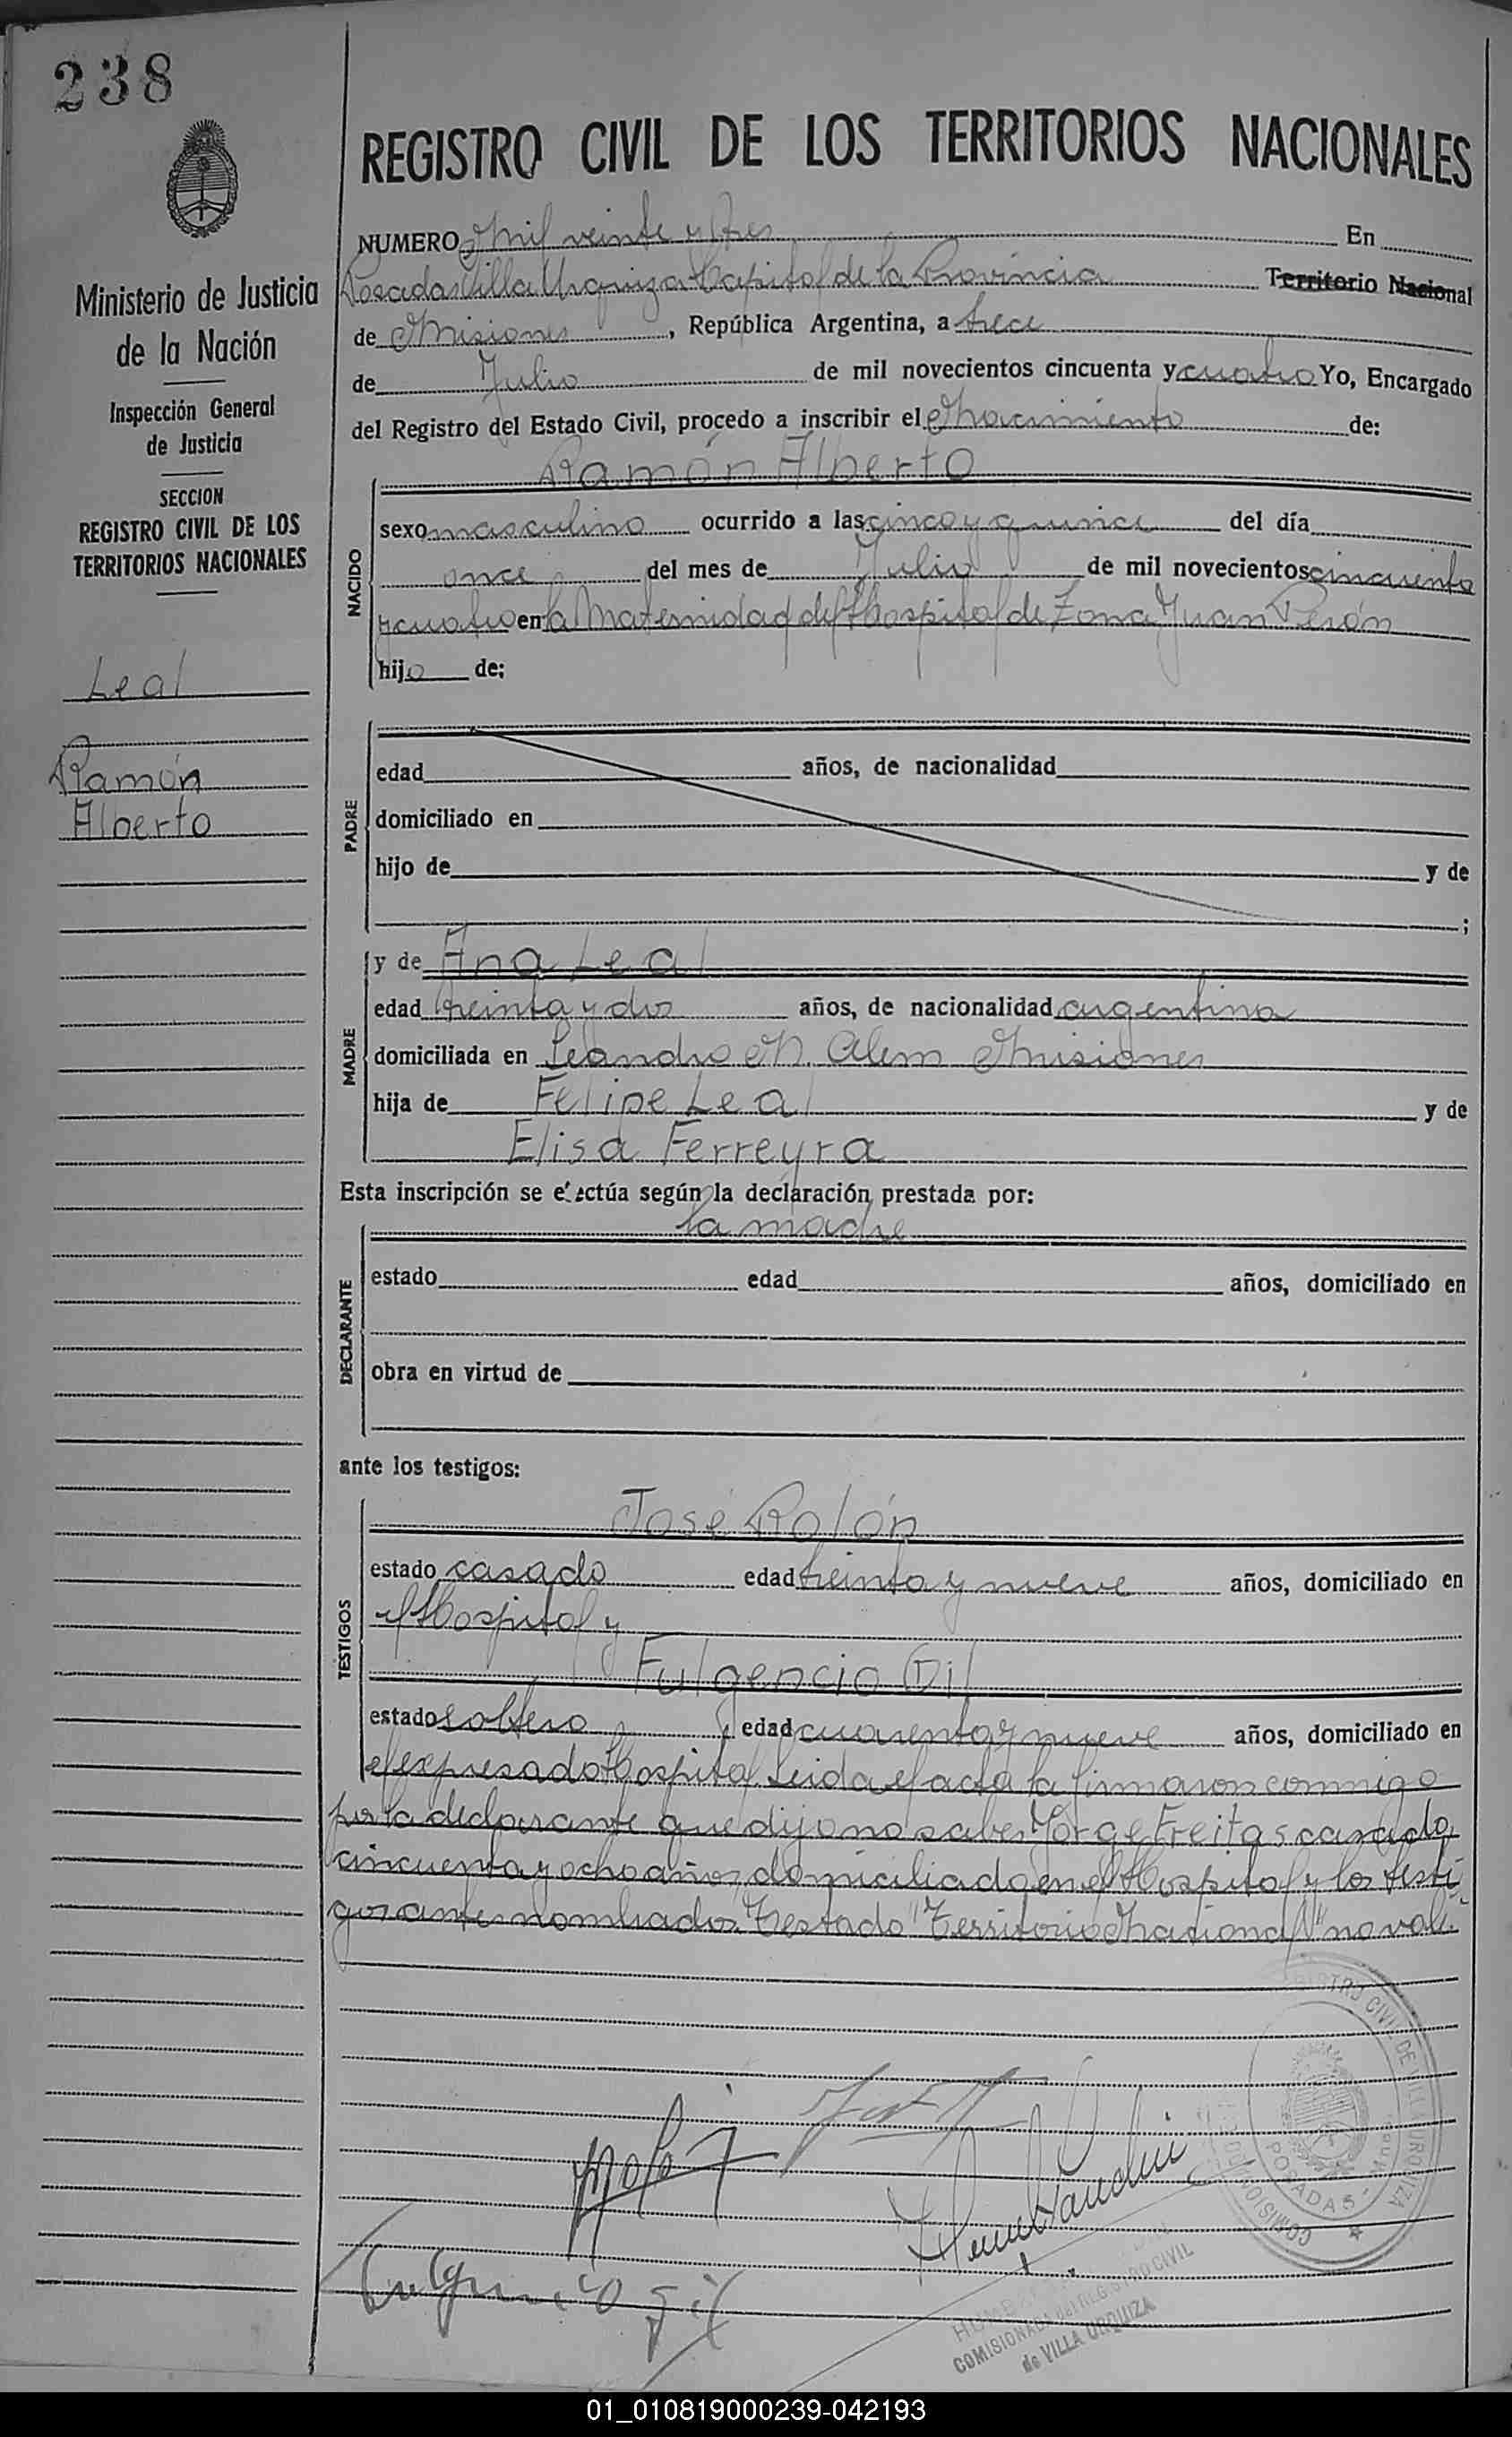 238
REGISTRO CIVIL DE LOS TERRITORIOS NACIONALES
NUMERO Mil veinte y tres En
Posadas Villa Urquiza Capital de la Provincia Territorio Nacional
de Misiones, República Argentina, a trece
de Julio de mil novecientos cincuenta y cuatro Yo, Encargado
del Registro del Estado Civil, procedo a inscribir el Nacimiento de:
Ministerio de Justicia
de la Nación
Inspección General
de Justicia
SECCION
REGISTRO CIVIL DE LOS
TERRITORIOS NACIONALES
Leal
Ramón
Alberto
NACIDO
Ramón Alberto
sexo masculino ocurrido a las cinco y quince del día
once del mes de Julio de mil novecientos cincuenta
y cuatro en la Maternidad del Hospital de Zona Juan Perón
hijo de;
PADRE
edad años, de nacionalidad
domiciliado en
hijo de y de
;
MADRE
y de Ana Leal
edad treinta y dos años, de nacionalidad argentina
domiciliada en Leandro N. Alem Misiones
hija de Felipe Leal y de
Elisa Ferreyra
Esta inscripción se efectúa según la declaración prestada por:
DECLARANTE
la madre
estado edad años, domiciliado en
obra en virtud de
ante los testigos:
TESTIGOS
José Rolón
estado casado edad treinta y nueve años, domiciliado en
el Hospital y
Fulgencio Gil
estado soltero edad cuarenta y nueve años, domiciliado en
el expresado Hospital. Leida el acta la firmaron conmigo
por la declarante que dijo no saber Jorge Freitas casado,
cincuenta y ocho años, domiciliado en el Hospital y los testi
gos antes nombrados. Testado "Territorio Nacional" no vale.
REGISTRO CIVIL DE VILLA URQUIZA
POSADAS - Mnes
Fulgencio Gil
COMISIONADA DEL REGISTRO CIVIL
de VILLA URQUIZA
01_010819000239-042193